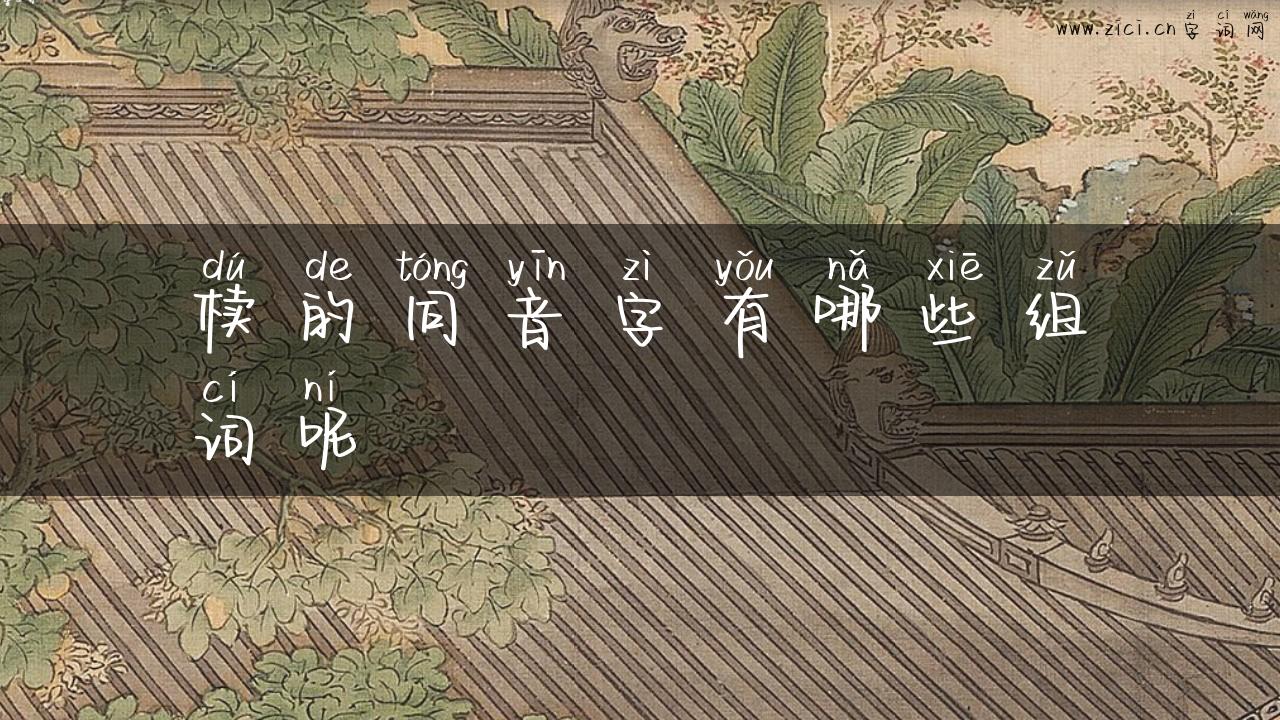 zì cí wǎng
www.zici.cn 字 词 网
dú de tóng yīn zì yǒu nǎ xiē zǔ
椟 的 同 音 字 有 哪 些 组
cí ní
词 呢